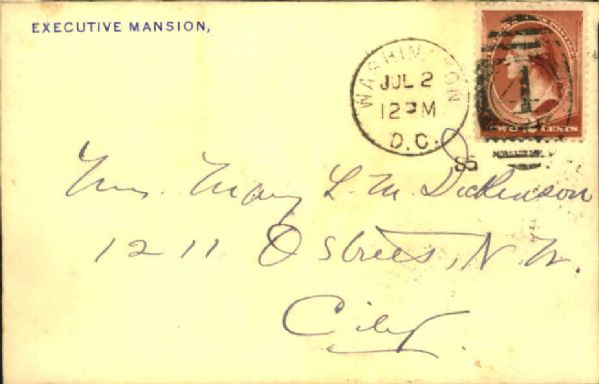 EXECUTIVE MANSION,
WASHINGTON
JUL 2
12 M
D.C.
85
TWO CENTS
1
Mrs. Mary L. M. Dickenson
1211 O Street, N. W.
City.